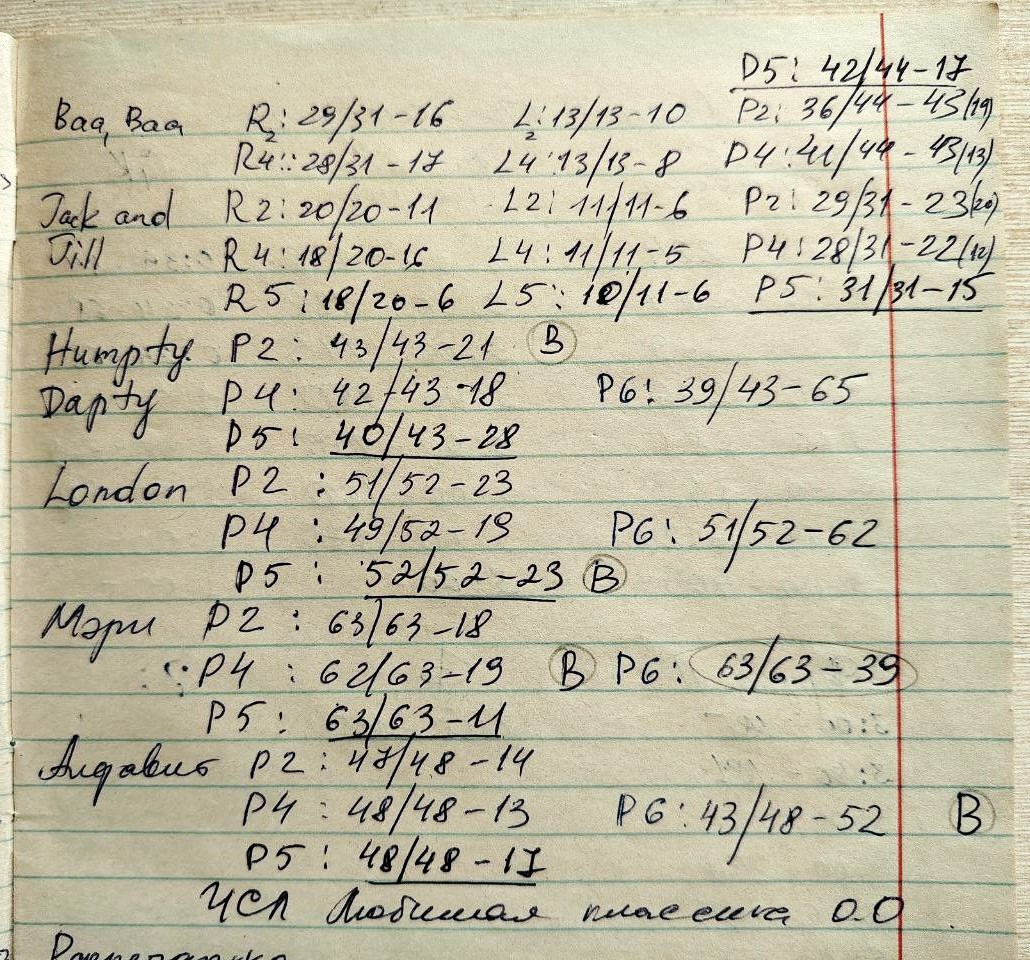 D5: 42/44-17
Baa, Baa R2: 29/31-16 L2: 13/13-10 P2: 36/44-43(19)
R4:: 28/31-17 L4: 13/13-8 D4: 41/44-43(13)
Jack and R2: 20/20-11 L2: 11/11-6 P2: 29/31-23(20)
Jill R4: 18/20-16 L4: 11/11-5 P4: 28/31-22(12)
R5: 18/20-6 L5: 10/11-6 P5: 31/31-15
Humpty P2: 43/43-21 B
Dapty P4: 42/43-18 P6: 39/43-65
D5: 40/43-28
London P2: 51/52-23
P4: 49/52-19 P6: 51/52-62
P5: 52/52-23 B
Мэри P2: 63/63-18
P4: 62/63-19 B P6: 63/63-39
P5: 63/63-11
Алфавит P2: 47/48-14
P4: 48/48-13 P6: 43/48-52 B
P5: 48/48-17
ЧСЛ Любимая классика 0.0